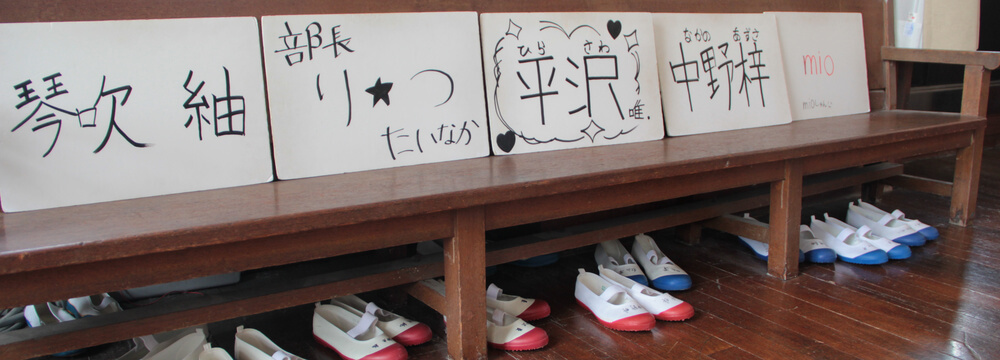 琴吹 紬
部長
り★つ
たいなか
ひら さわ
平沢
唯.
なかの あずさ
中野梓
mio